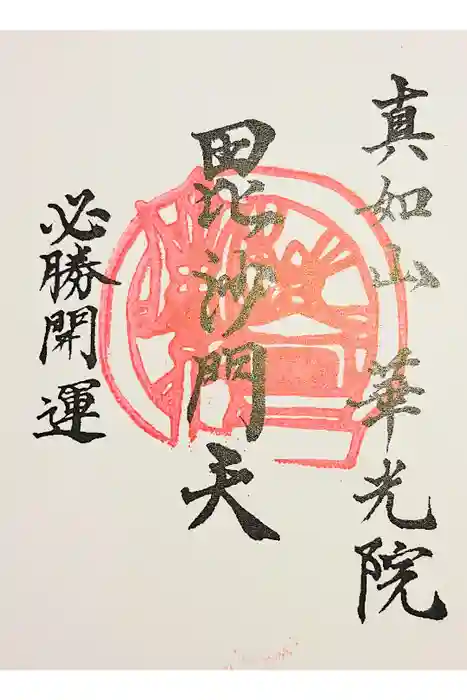 真如山 華光院
毘沙門天
必勝開運